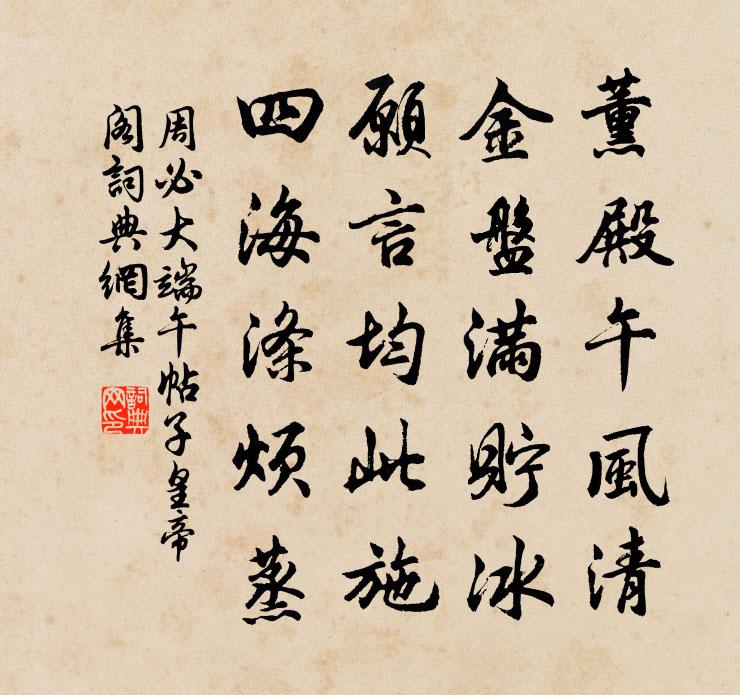 薰殿午風清
金盤滿貯冰
願言均此施
四海滌煩蒸
周必大端午帖子皇帝
閣詞典網集
詞典网印